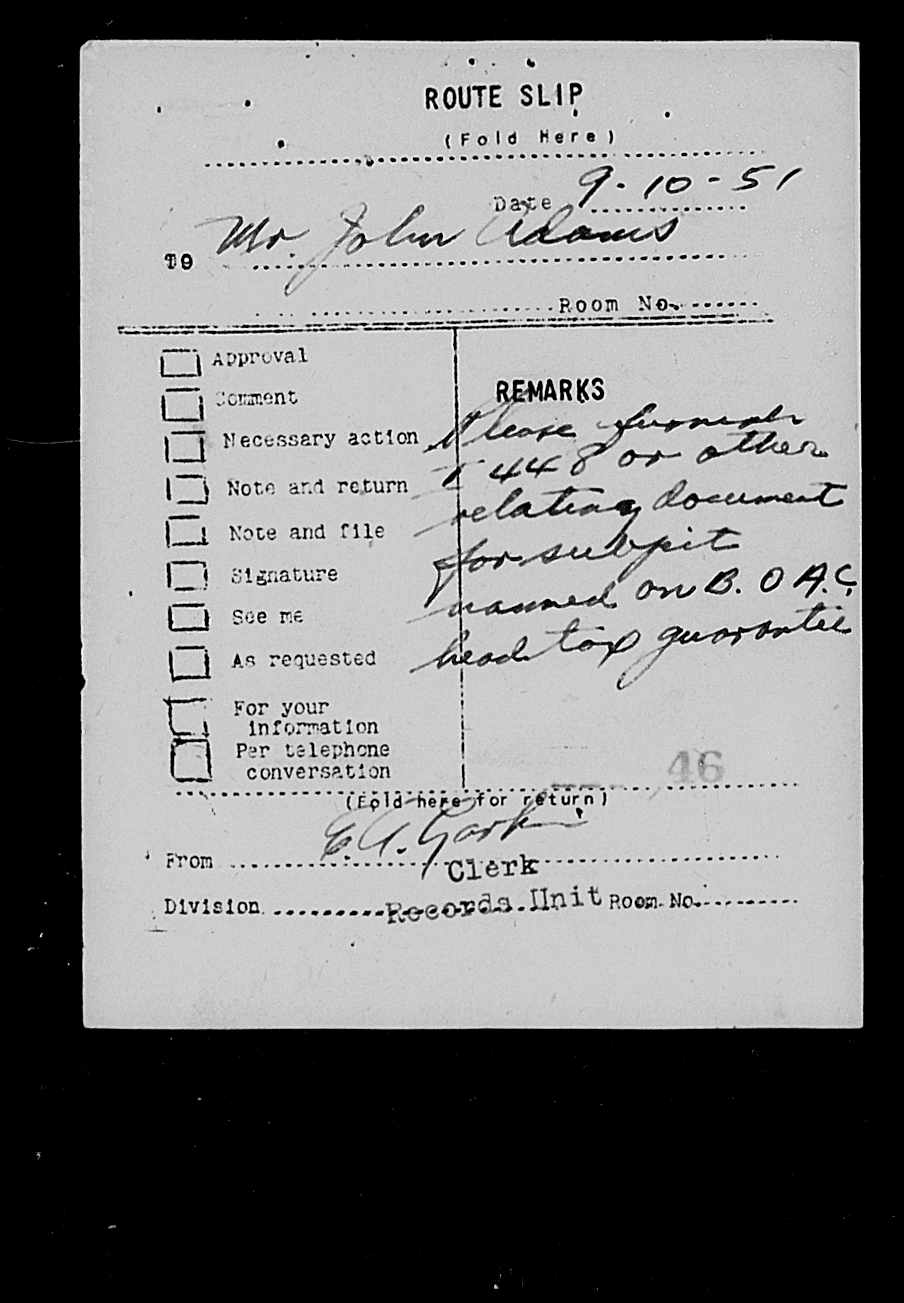 ROUTE SLIP
(Fold Here)
Date 9-10-51
To Mr. John Adams
Room No.
Approval
Comment
Necessary action
Note and return
Note and file
Signature
See me
As requested
For your
information
Per telephone
conversation
REMARKS
Please furnish
I 448 or other
relating document
for subject
named on B.O.A.C.
head tax guarantee
46
(Fold here for return)
From E. A.
Clerk
Division Records Unit Room No.